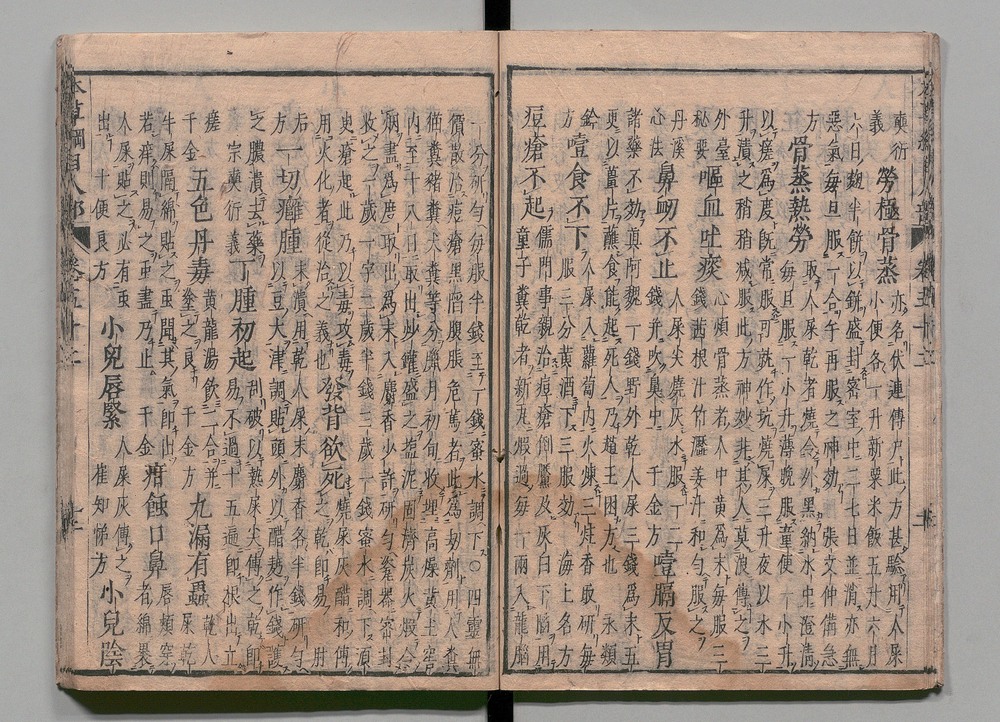 本草綱目人部 卷五十二
奭衍義 勞極骨蒸 亦名伏連傳尸此方甚驗用人屎小便各一升新粟米飯五升六月
六日麹半餅以缾盛封密室中二七日並消亦無
惡氣每旦服一合午再服之神効 張文仲備急
方 骨蒸熱勞 取人屎乾者燒令外黑内水中澄清每旦服一小升薄晩服童便一小升
以瘥爲度既常服可就作坑燒屎三升夜以水三
升漬之稍稍減服此方神妙非其人莫浪傳之
外臺秘要 嘔血吐痰 心煩骨蒸者人中黄爲末每服三錢茜根汁竹瀝姜汁和勻服之
丹溪心法 鼻衂不止 人屎尖燒灰水服一二錢并吹鼻中 千金方 噎膈反胃
諸藥不効真阿魏一錢野外乾人屎三錢爲末五
更以薑片蘸食能起死人乃趙玉困方也 永類
鈐方 噎食不下 人屎入蘿蔔内火煉三炷香取研每服三分黄酒下三服効 海上名方
痘瘡不起 儒門事親治痘瘡倒黶及灰白下陷用童子糞乾者新瓦煆過每一兩入龍腦
一分研勻每服半錢至一錢蜜水調下○四靈無
價散治痘瘡黑陷腹脹危篤者此爲刼劑用人糞
猫糞猪糞犬糞等分臘月初旬收埋高燥黄土窖
内至臘八日取出砂鑵盛之盐泥固濟炭火煆令
烟盡爲度取出爲末入麝香少許研勻瓷器密封
收之一歳一字二歳半錢三歳一錢蜜水調下須
臾瘡起此乃以毒攻毒 發背欲死 燒屎灰醋和傅
用火化者從治之義也 之乾即易 肘
后方 一切癰腫 未潰用乾人屎末麝香各半錢研勻以豆大津調貼頭外以醋麵作錢護
之膿潰去藥 宗奭衍義 丁腫初起 刮破以熱屎尖傅之乾即易不過十五遍即根出立
瘥 千金 五色丹毒 黄龍湯飲二合并塗之良 千金方 九漏有蟲 乾人屎乾
牛屎隔綿貼之虫聞其氣即出
若痒則易之虫盡乃止 千金 疳蝕口鼻 唇頰穿者綿裹
人屎貼之必有虫出 十便良方 小兒唇緊 人屎灰傅之 崔知悌方 小兒陰
本草綱目人部 卷五十二